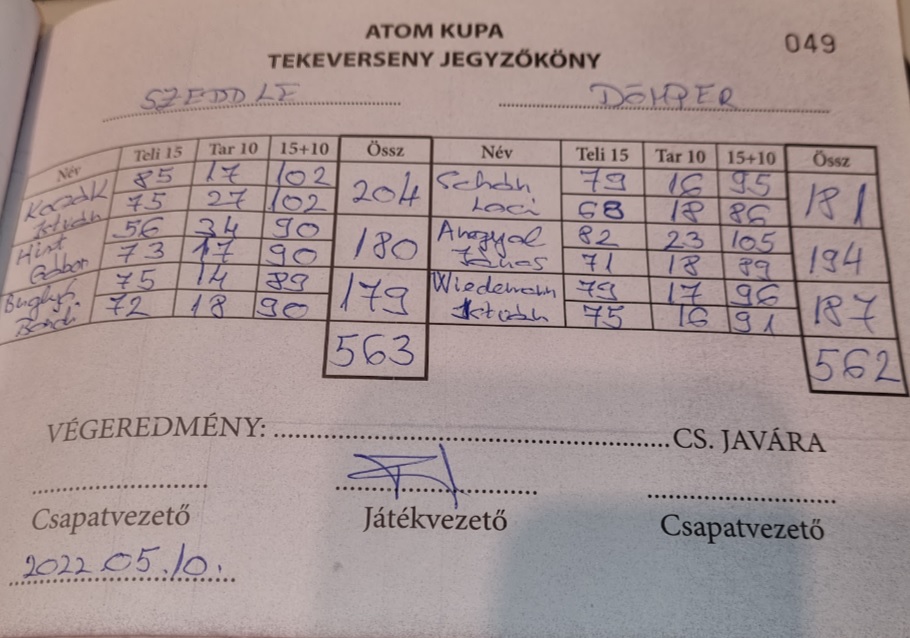 ATOM KUPA
049
TEKEVERSENY JEGYZŐKÖNY
SZEDDLE DÖMPER
Név Teli 15 Tar 10 15+10 Össz Név Teli 15 Tar 10 15+10 Össz
Kozák 85 17 102 204 Schón 79 16 95 181
István 75 27 102 Laci 68 18 86
Hirt 56 34 90 180 Angyal 82 23 105 194
Gábor 73 17 90 János 71 18 89
75 14 89 179 Wiedemann 79 17 96 187
Bandi 72 18 90 István 75 16 91
563 562
VÉGEREDMÉNY: CS. JAVÁRA
Csapatvezető Játékvezető Csapatvezető
2022 05.10.